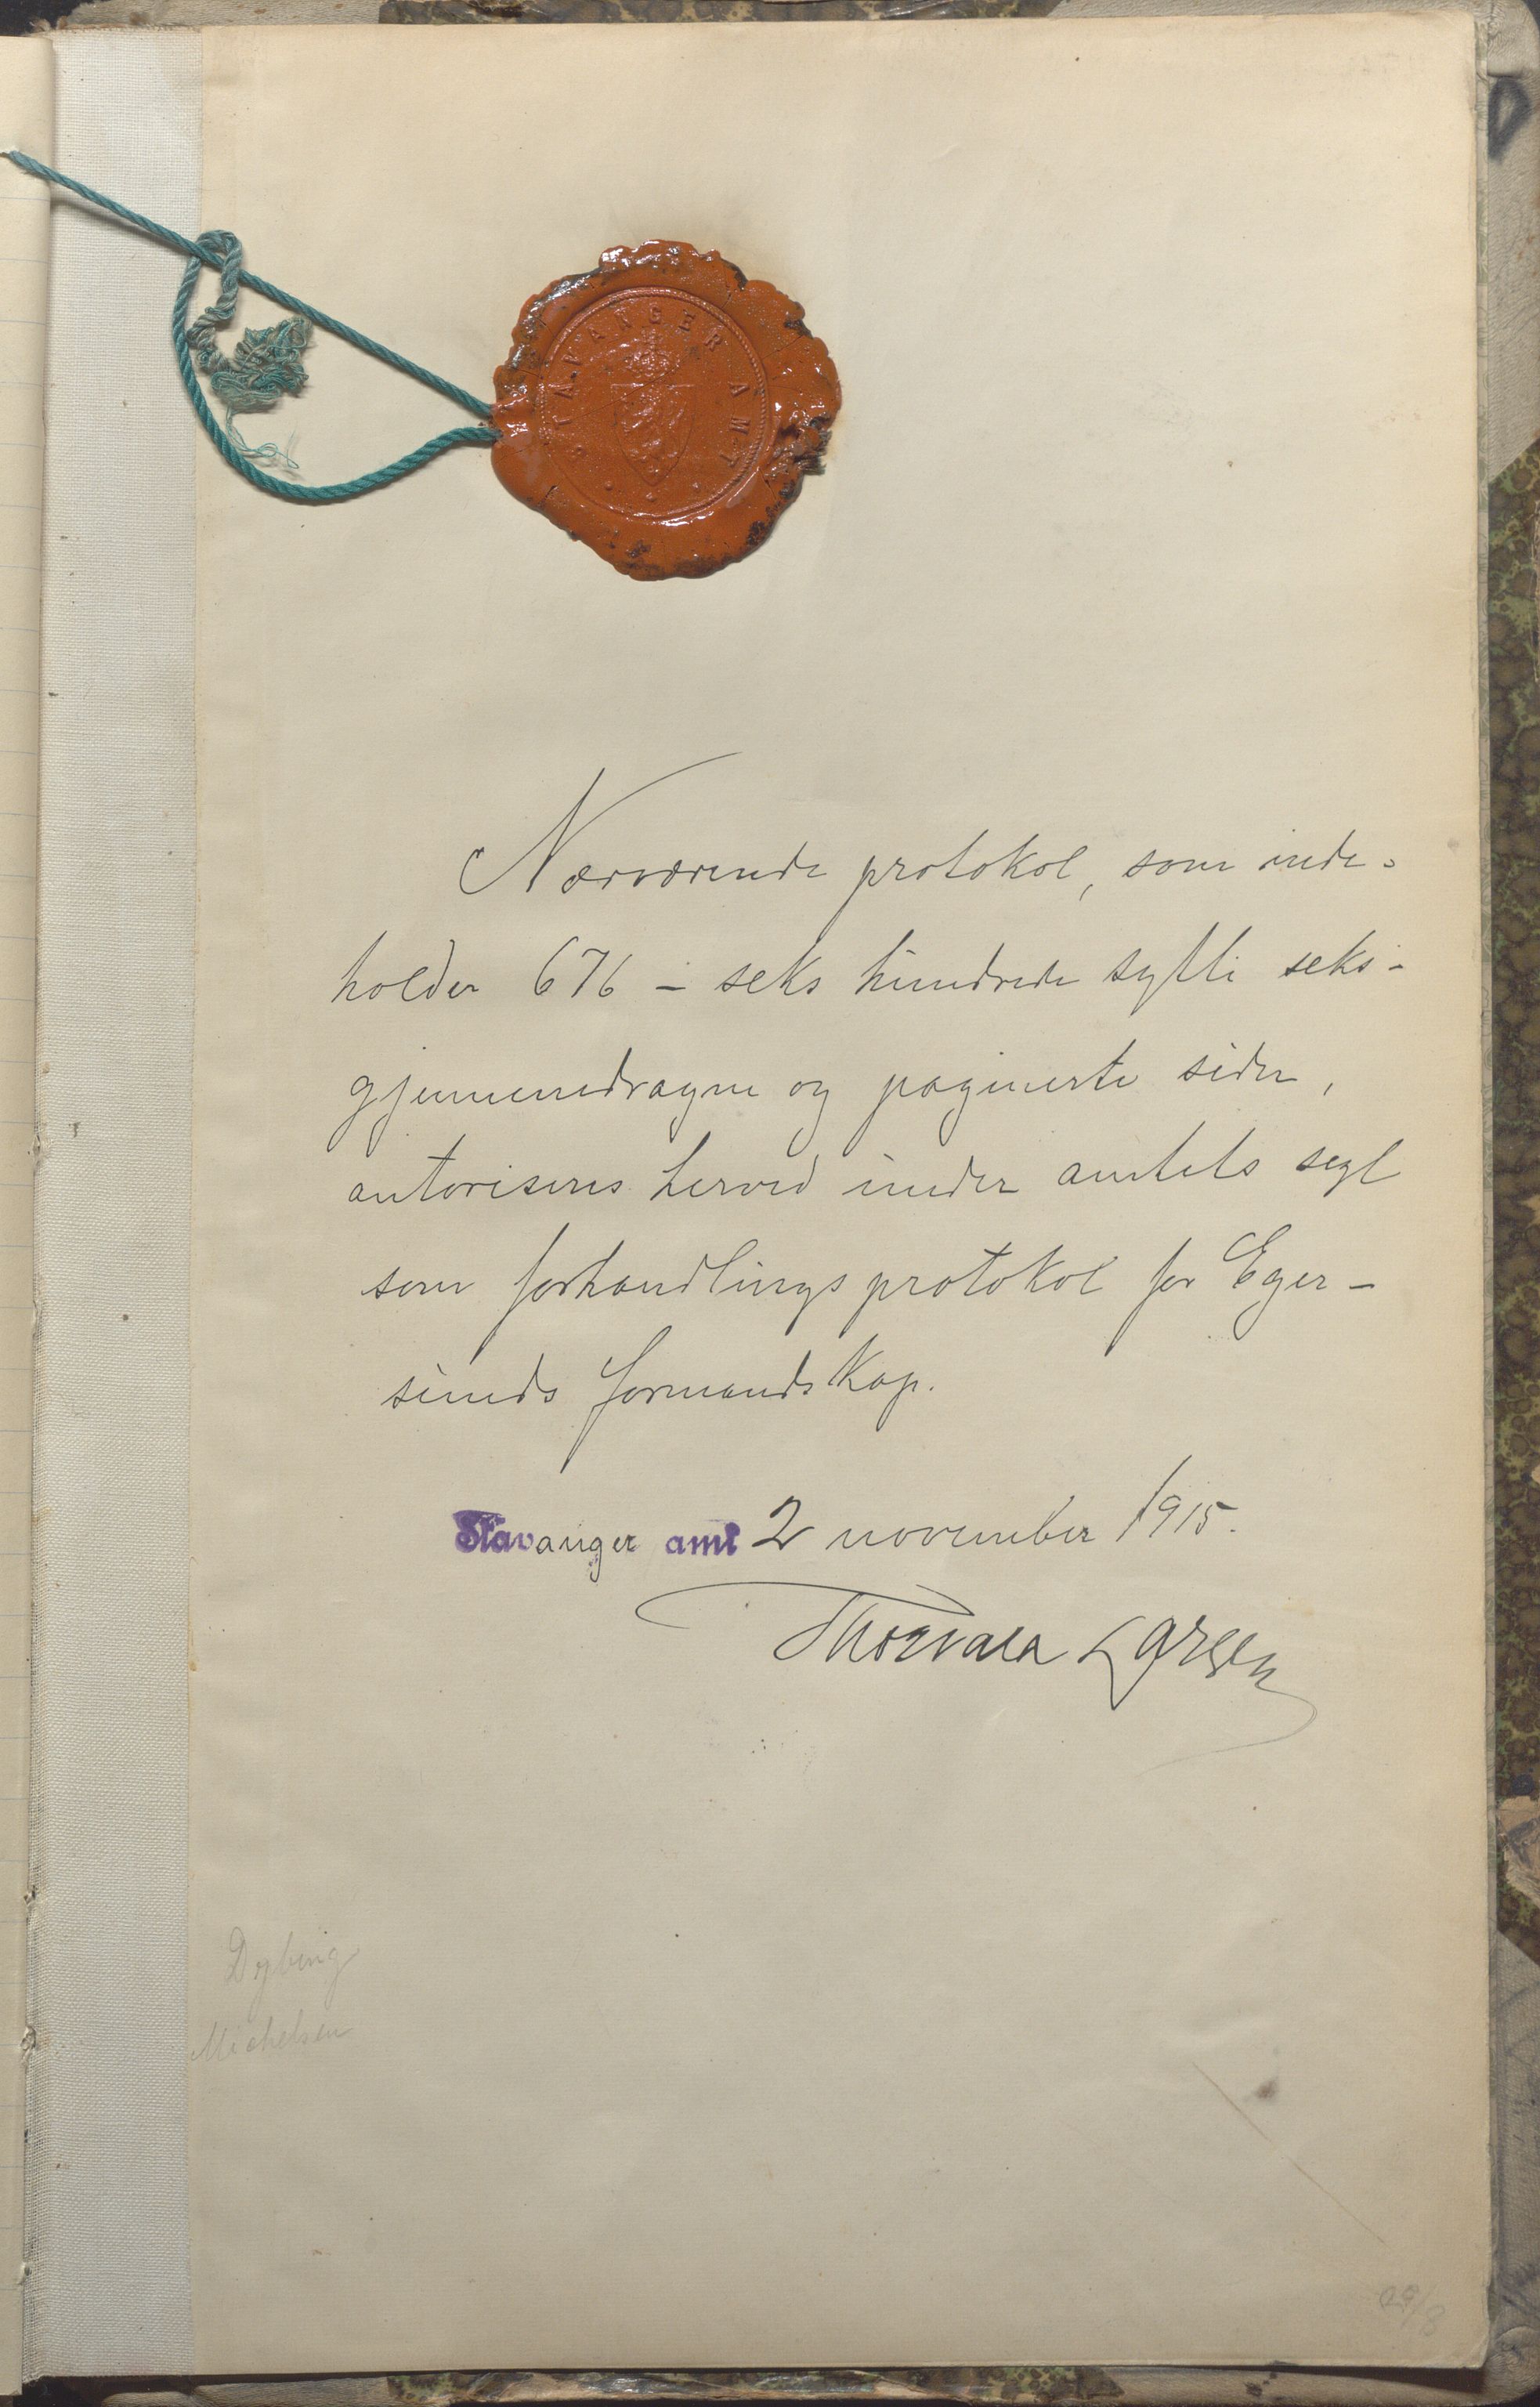 STAVANGER AMT
Nærværende protokol, som inde-
holder 676 - seks hundrede sytti seks -
gjennemdragne og paginerte sider,
autoriseres herved under amtets segl
som forhandlingsprotokol for Eger-
sunds formandskap.
Stavanger amt 2 november 1915.
Thorvald Larsen
Dybing
Michelsen
29/8